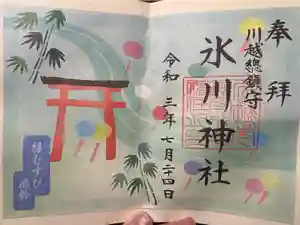 奉拝
川越總鎮守
氷川神社
令和三年七月二十四日
縁むすび
風鈴